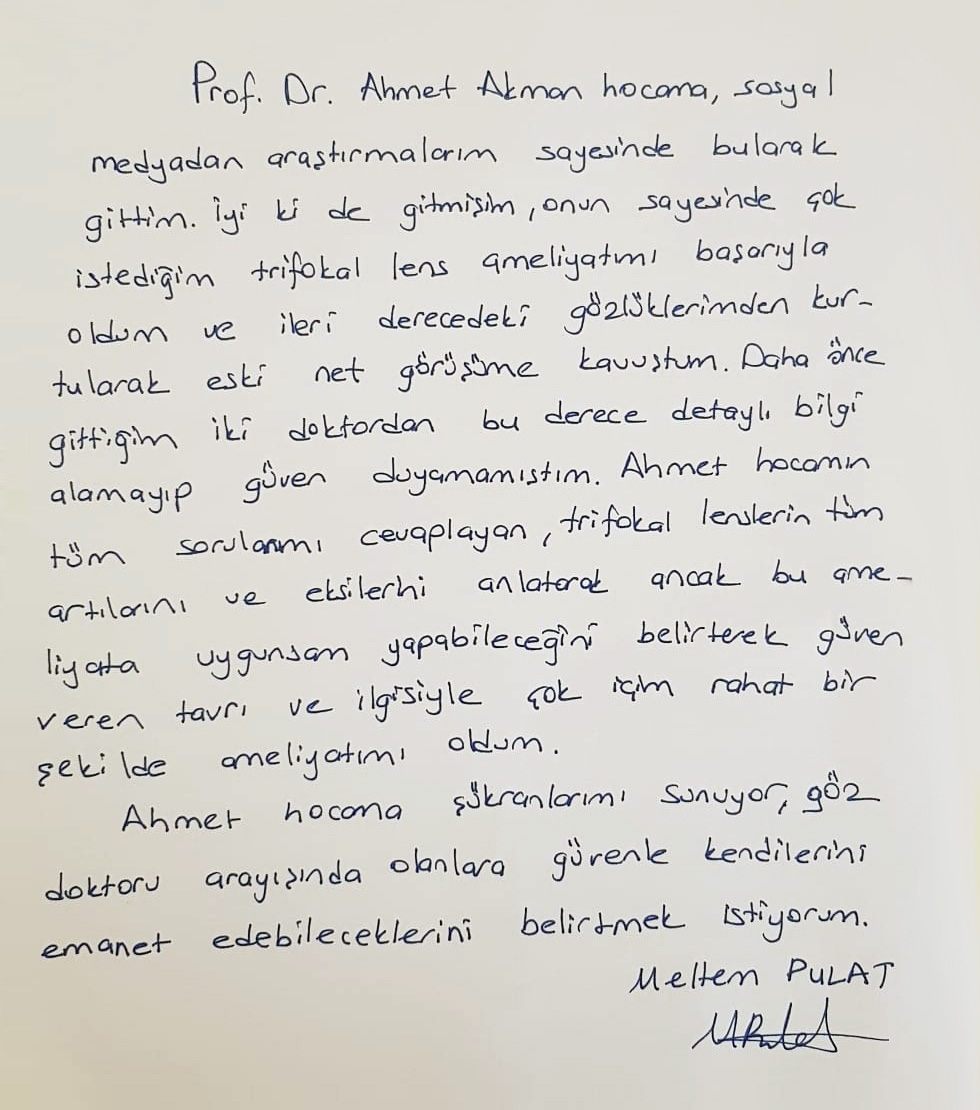 Prof. Dr. Ahmet Akman hocama, sosyal
medyadan araştırmalarım sayesinde bularak
gittim. İyi ki de gitmişim, onun sayesinde çok
istediğim trifokal lens ameliyatımı başarıyla
oldum ve ileri derecedeki gözlüklerimden kur-
tularak eski net görüşüme kavuştum. Daha önce
gittiğim iki doktordan bu derece detaylı bilgi
alamayıp güven duyamamıştım. Ahmet hocamın
tüm sorularımı cevaplayan, trifokal lenslerin tüm
artılarını ve eksilerini anlatarak ancak bu ame-
liyata uygunsam yapabileceğini belirterek güven
veren tavrı ve ilgisiyle çok içim rahat bir
şekilde ameliyatımı oldum.
Ahmet hocama şükranlarımı sunuyor, göz
doktoru arayışında olanlara güvenle kendilerini
emanet edebileceklerini belirtmek istiyorum.
Meltem PULAT